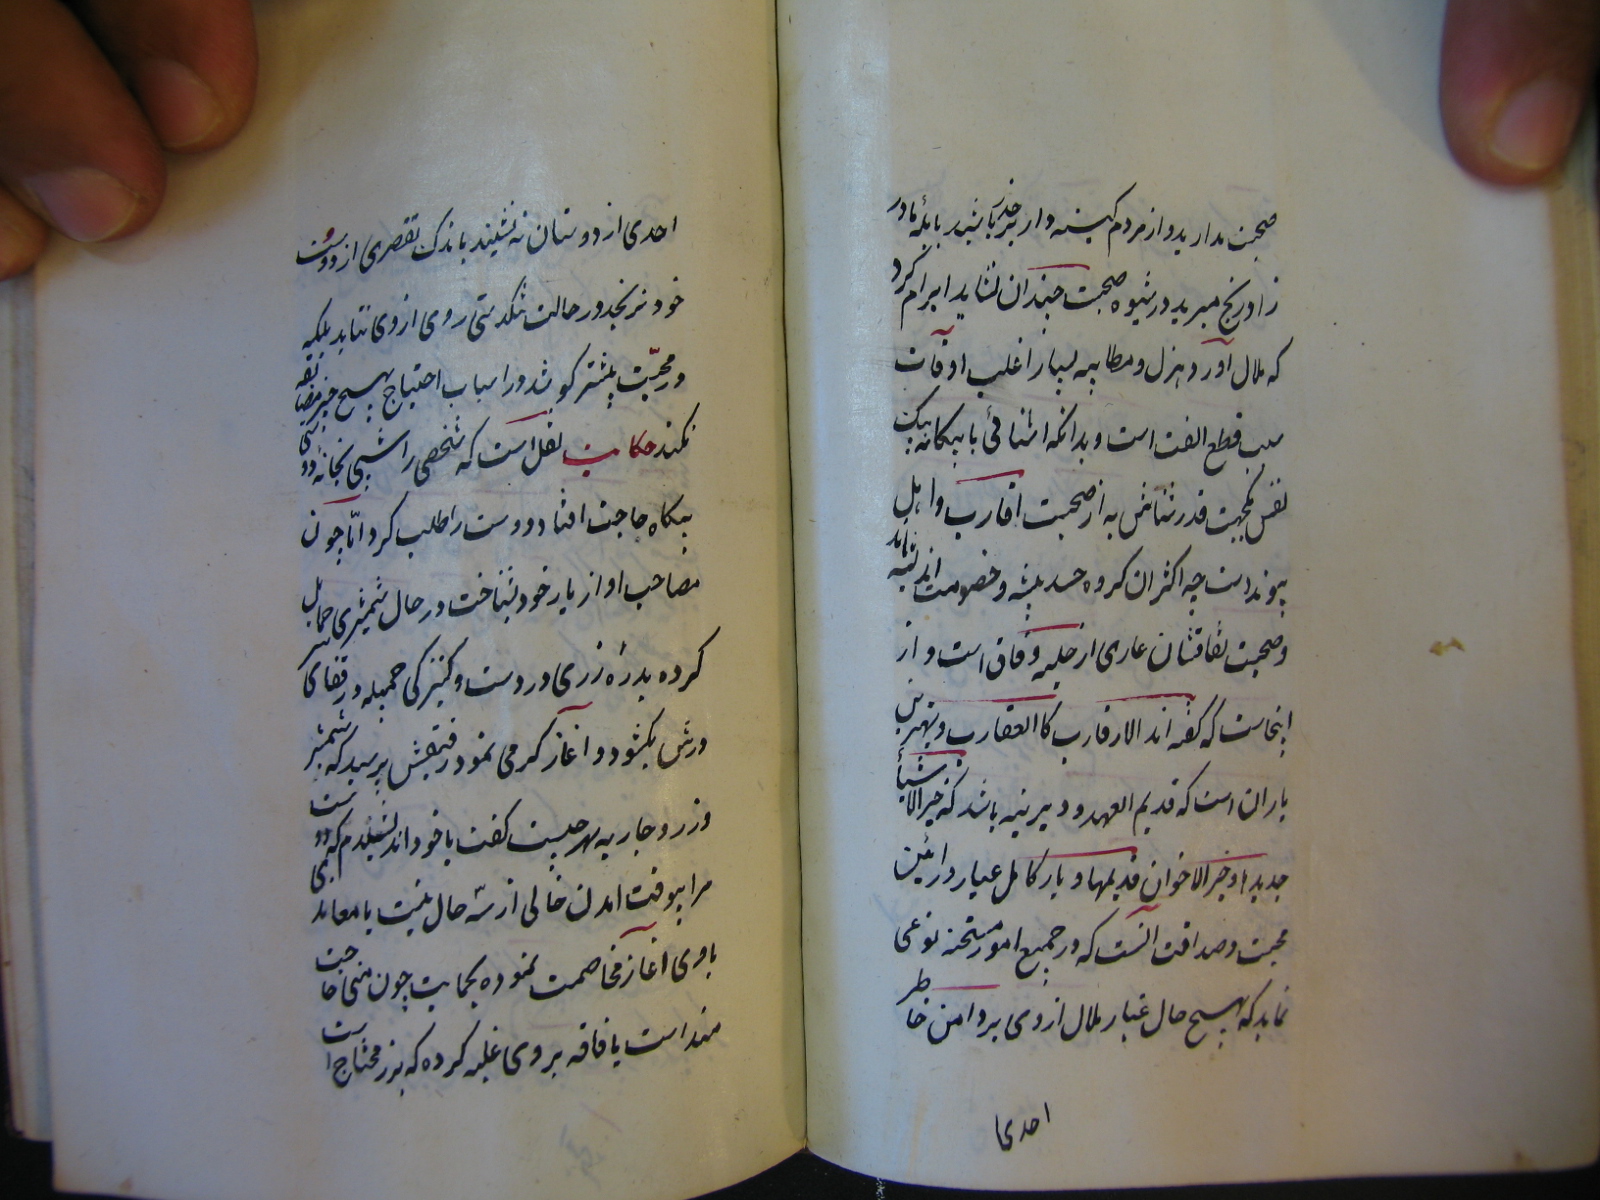 صحبت مدارید و از مردم کینه دار بر حذر باشید با بله مادر
زاد رنج مبرید در شیوه صحبت چندان نشاید ابرام کرد
که ملال آورد و هزل و مطایبه بسیار اغلب اوقات
سبب قطع الفت است و بدانکه اشنائی با بیکانه نیک
نفس بجهت قدر شناس به از صحبت اقارب و اهل
پیوند است چه اکثر ان کروه حسد پیشه و خصومت اندیشه اند
و صحبت نفاقشان عاری از حلیه وفاق است و از
اینجاست که کفته اند الاقارب کا العقارب و بهترین
یاران است که قدیم العهد و دیرینه باشد که خیر الاشیأ
جدیدها و خیر الاخوان قدیمها و یار کامل عیار در ائین
محبت و صداقت انست که در جمیع امور مستحنه نوعی
نماید که بهیچ حال غبار ملال از وی بر دامن خاطر
احدی
احدی از دوستان نه نشیند باندک تقصیری از دوست
خود نرنجد در حالت تنکدستی روی از وی نتابد بلکه
در محبّت بیشتر کوشد و در اسباب احتیاج بهیچ چیز مضایقه
نکند حکایت نقل است که شخصی را شبی بخانه دوستی
بیکاه حاجت افتاد دوست را طلب کرد امّا چون
مصاحب اواز یار خود شناخت در حال شمشیری حمایل
کرده بدرهٔ زری در دست و کنیزکی جمیله در قفای
درش بکشود و اغاز کرمی نمود رفیقش پرسید که شمشیر
و زر و جاریه بهر چیست کفت با خود اندیشیدم که دوست
مرا بیوقت امدن خالی از سه حال نیست یا معاندی
باوی اغاز مخاصمت نموده بحمایت چون منی حاجت
مند است یا فاقه بروی غلبه کرده که بزر محتاج است